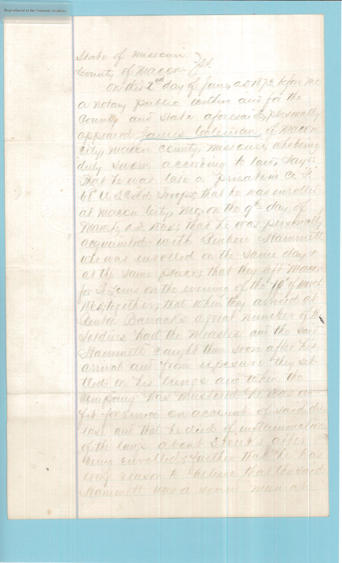 Reproduced at the National Archives
State of Missouri } SS
County of Macon
On this 2nd day of June A D 1872 before me
a notary public within and for the
County and State aforesaid personally
appeared James Coleman of Macon
City Macon county Missouri who being
duly sworn according to law Says
That he was late a private in Co
68 U S Cold Troops, that he was enrolled
at Macon City Mo on the 9th day of
March A D that he was personally
acquainted with Hammett
who was enrolled on the same day &
at the same place that they left Macon
for St Louis on the evening of the 10th of March
together that when they arrived at
Benton Barracks a great number of the
Soldiers had the Measles and the said
Hammett caught them soon after his
arrival and from exposure they set-
tled on his lungs and when the
Company was mustered he was un-
fit for service on account of said dis
ease and that he died of inflammation
of the lungs about weeks after
being enrolled & further that he has
every reason to believe that the said
Hammett was a sound man at